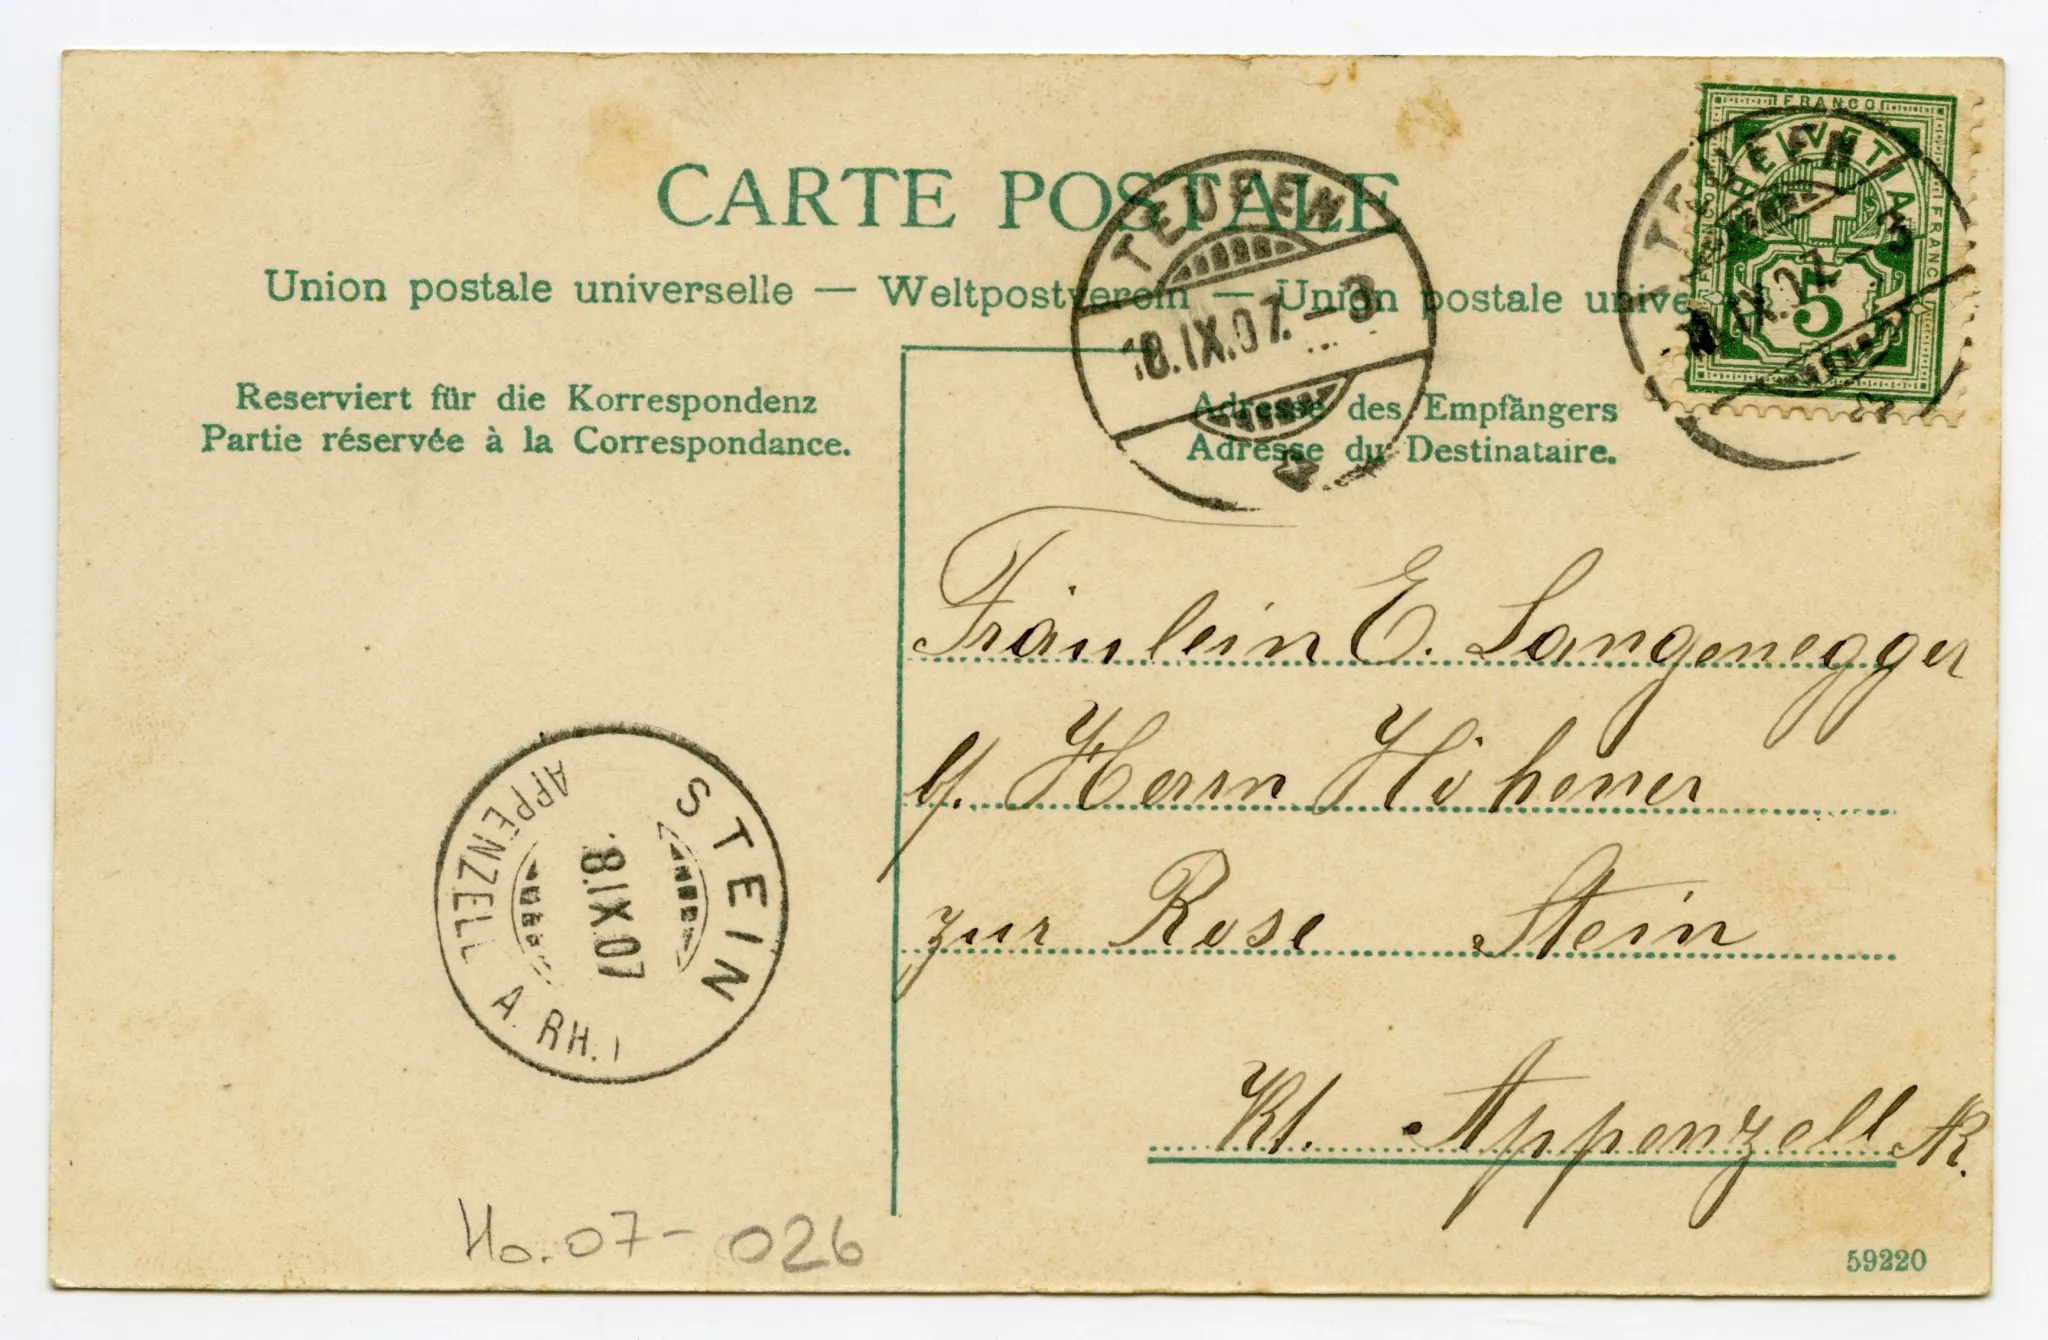 CARTE POSTALE
Union postale universelle — Weltpostverein — Union postale unive
Reserviert für die Korrespondenz
Partie réservée à la Correspondance.
Adresse des Empfängers
Adresse du Destinataire.
TEUFEN
18.IX.07.–3
TEUFEN
IX.07.–3
FRANCO
HELVETIA
FRANCO
FRANCO
5
Fräulein E. Langenegger
b/. Herrn Höhener
zur Rose Stein
Kt. Appenzell AR.
STEIN
18.IX.07
APPENZELL A. RH.
Ho.07-026
59220